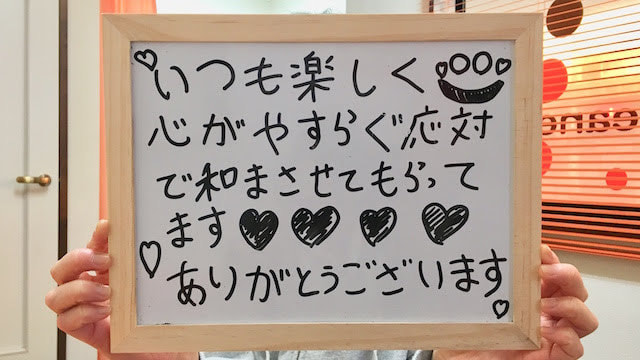 いつも楽しく
心がやすらぐ応対
で和まさせてもらって
ます
ありがとうございます